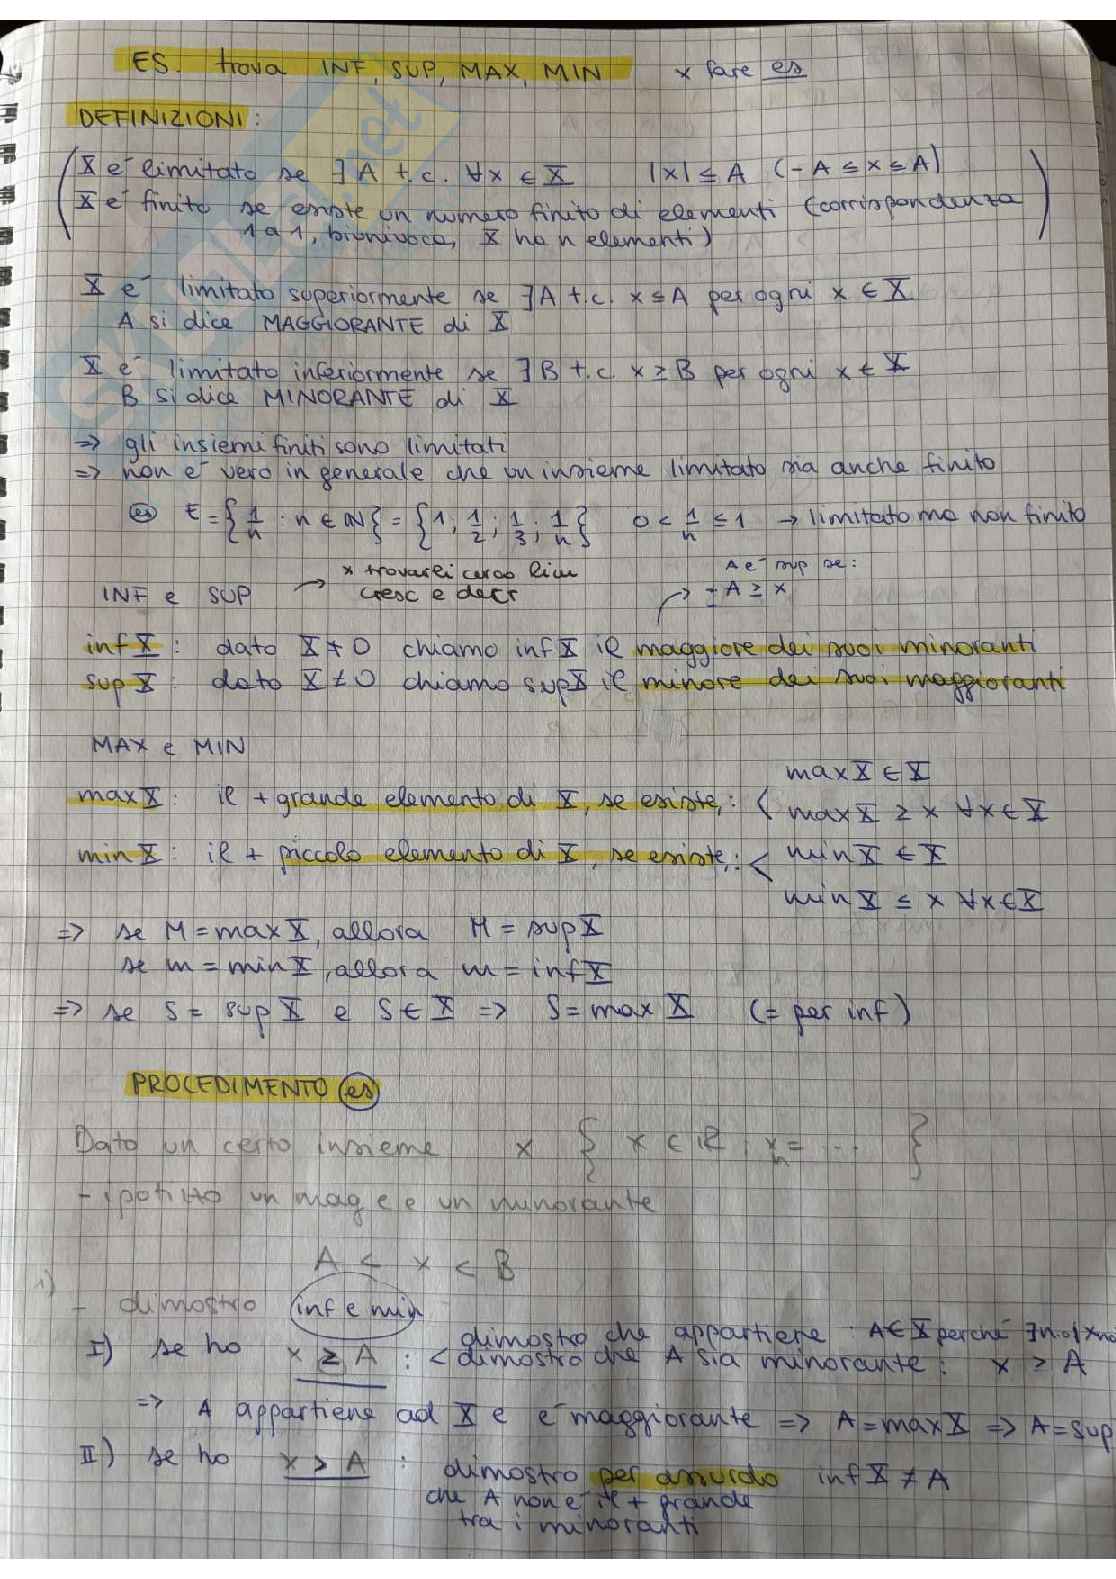 ES. trova INF, SUP, MAX, MIN x fare es
DEFINIZIONI:
X è limitato se ∃ A t.c. ∀x ∈ X |x| ≤ A (-A ≤ x ≤ A)
X è finito se esiste un numero finito di elementi (corrispondenza
1 a 1, biunivoca, X ha n elementi)
X è limitato superiormente se ∃A t.c. x ≤ A per ogni x ∈ X
A si dice MAGGIORANTE di X
X è limitato inferiormente se ∃B t.c. x ≥ B per ogni x ∈ X
B si dice MINORANTE di X
=> gli insiemi finiti sono limitati
=> non è vero in generale che un insieme limitato sia anche finito
es E = {1/n : n ∈ N} = {1, 1/2; 1/3; 1/n} 0 < 1/n ≤ 1 → limitato ma non finito
INF e SUP → x trovarli cerco lim
cresc e decr
A è sup se:
- A ≥ x
inf X : dato X ≠ 0 chiamo inf X il maggiore dei suoi minoranti
sup X : dato X ≠ 0 chiamo sup X il minore dei suoi maggioranti
MAX e MIN
max X ∈ X
max X : il + grande elemento di X, se esiste, : < max X ≥ x ∀x ∈ X
min X : il + piccolo elemento di X, se esiste, : < min X ∈ X
min X ≤ x ∀x ∈ X
=> se M = max X, allora M = sup X
se m = min X, allora m = inf X
=> se S = sup X e S ∈ X => S = max X (= per inf)
PROCEDIMENTO es
Dato un certo insieme x { x ⊂ R : xn = ... }
- ipotizzo un mag e e un minorante
A < x < B
1)
- dimostro inf e min
I) se ho x ≥ A : < dimostro che appartiene : A ∈ X perché ∃
dimostro che A sia minorante : x ≥ A
=> A appartiene ad X e è maggiorante => A = max X => A = sup
II) se ho x > A : dimostro per assurdo inf X ≠ A
che A non è il + grande
tra i minoranti